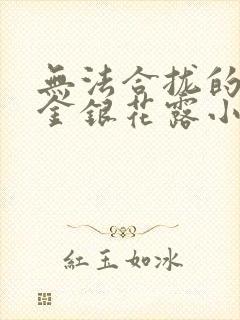 無法合拢的
金銀花露小
紅玉如冰